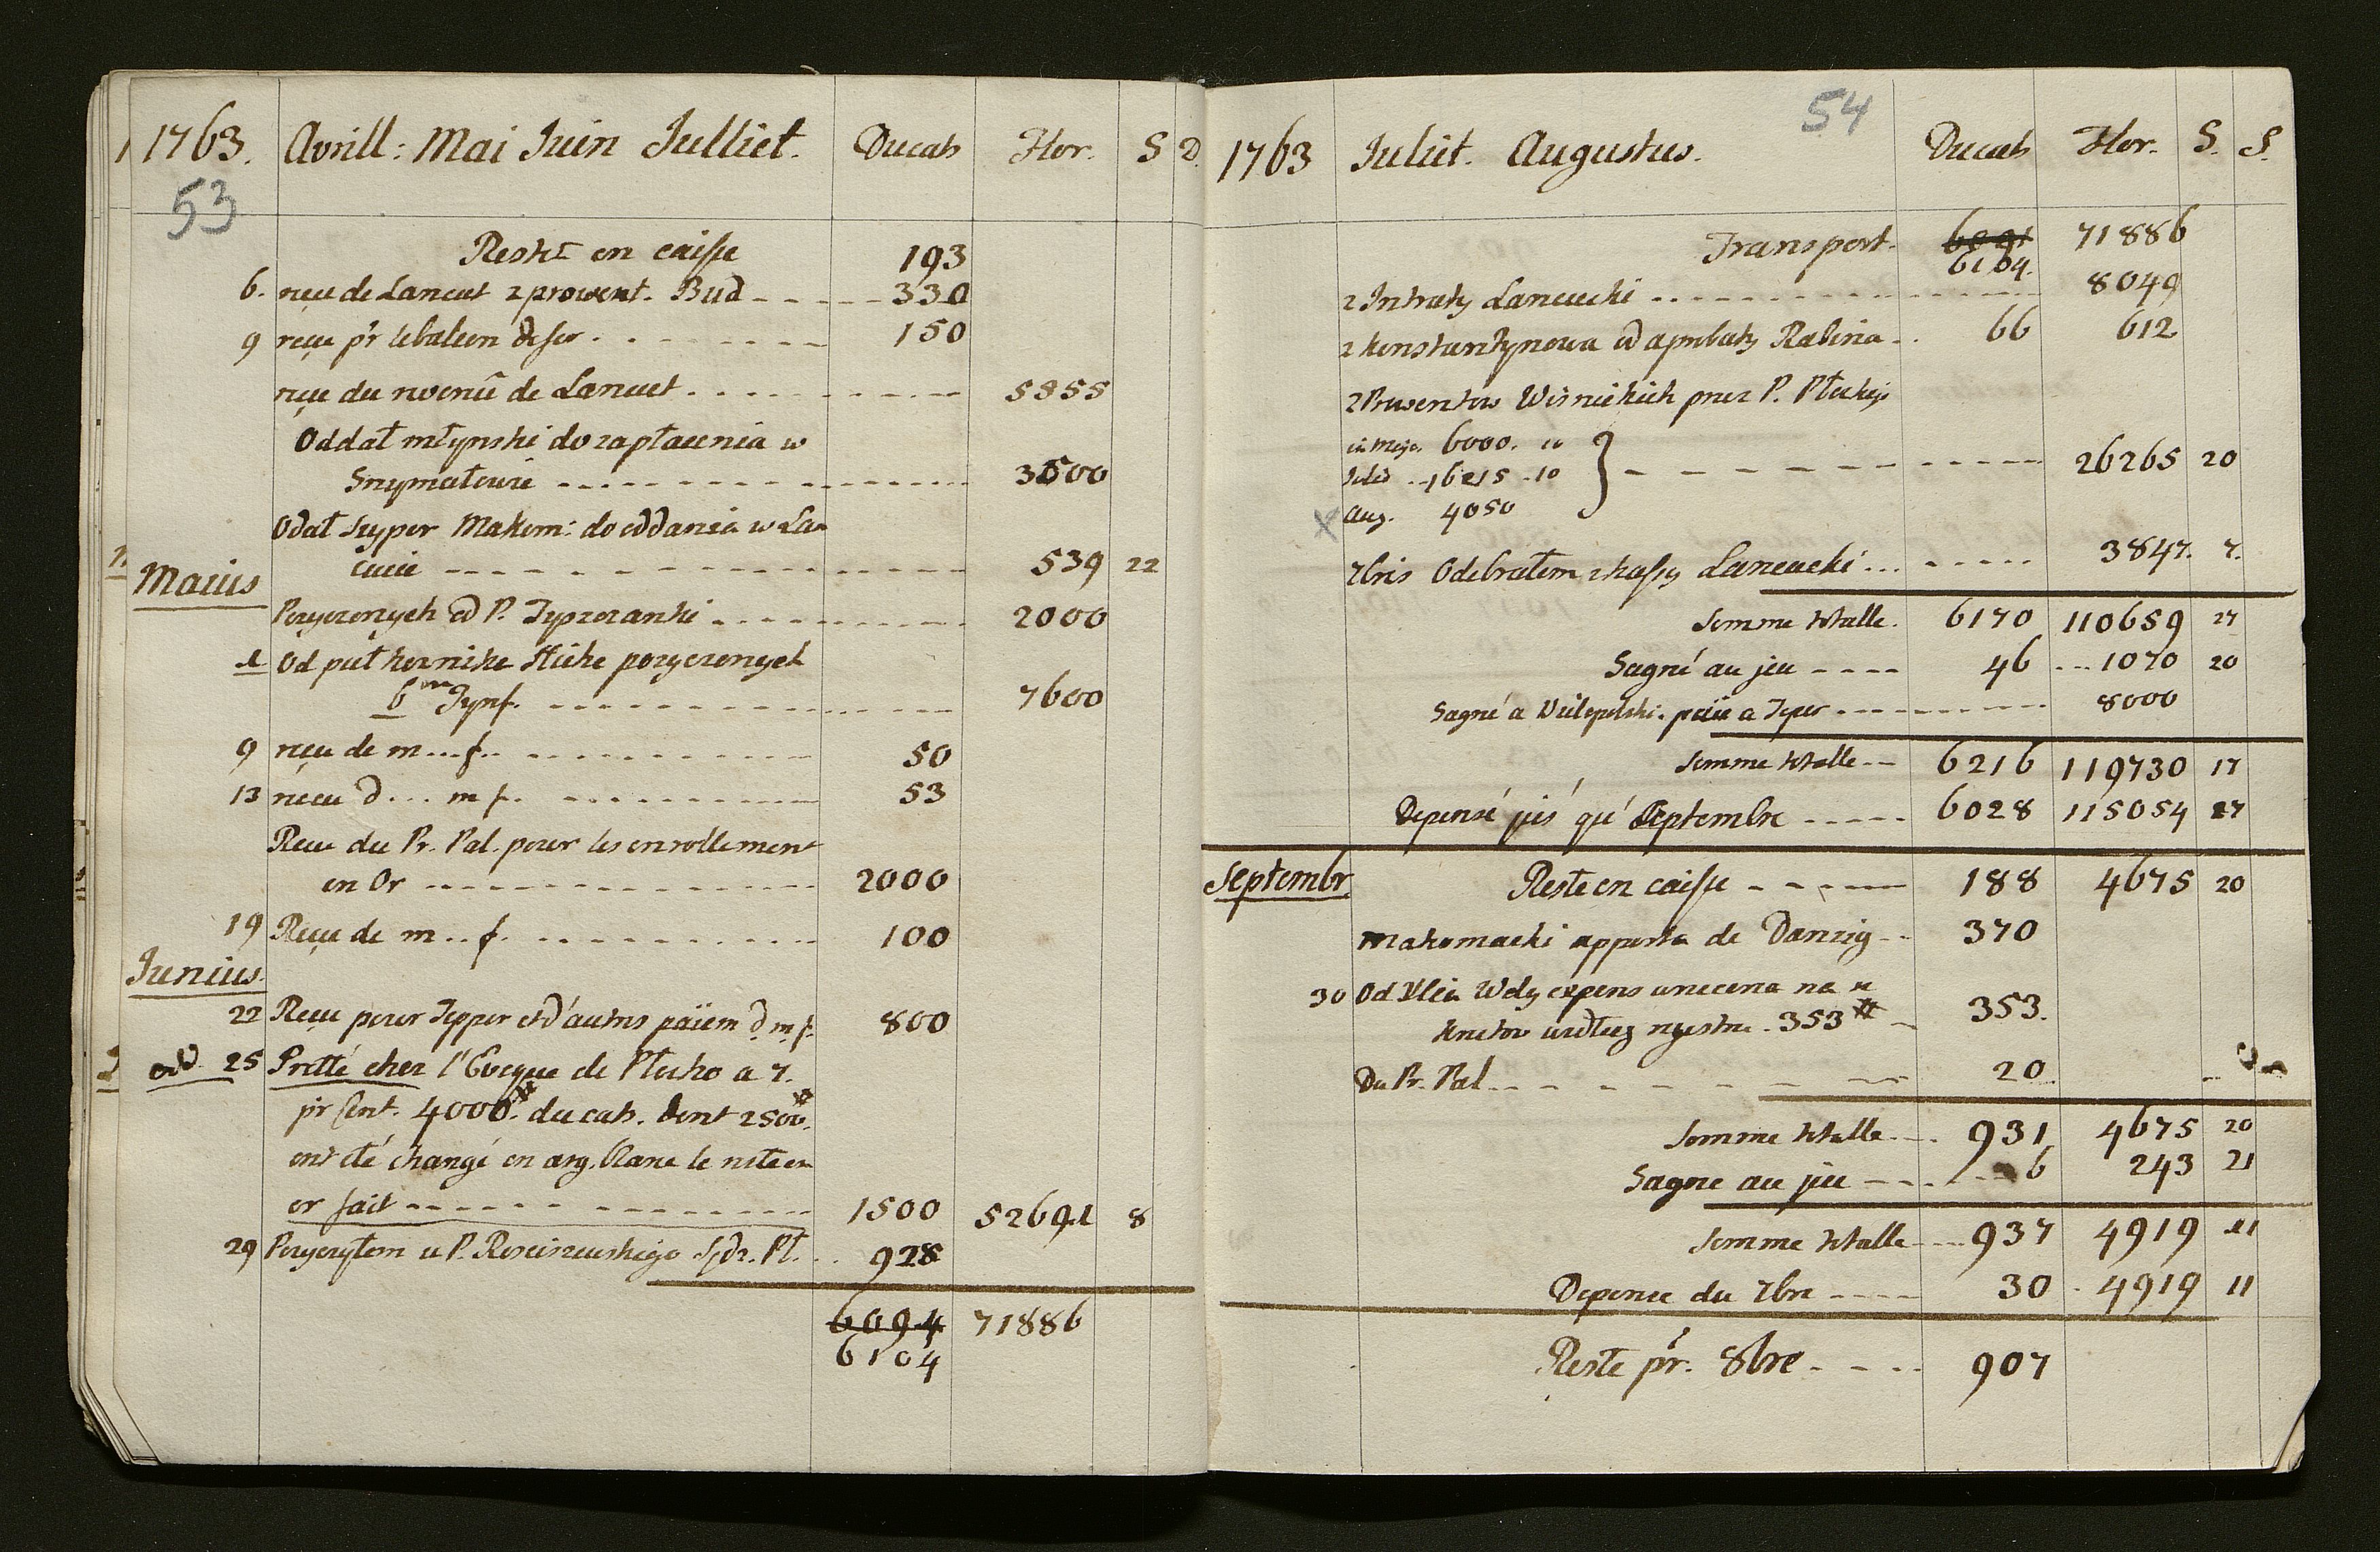 1763. Avrill: Mai Juin Julliet. Ducats Flor. S D.
53
Resté en caisse 193
6. reçu de Lancut z prowent. Bud 330
9 reçu p'r 150
reçu du revenû de Lancut 5855
Oddał młynski do zapłacenia w
3500
Odał Szyper Makom: do oddania w Lan
cucie 539 22
Maius
Pozyczonych od P. 2000
1 Od pułkownika Hicke pozyczonych
6 m Tynf. 7600
9 reçu de m...f.. 50
13 recu d... m f. 53
Recu du Pr. Pal. pour les enrollement
en Or 2000
19 Reçu de m..f. 100
Junius.
22 Recu pour Tepper et d'autres paiem d m f. 800
odd. 25 Pretté chez l'Eveque de Plocko a 7.
p'r Cent. 4000# ducats. dont 2500#.
ont eté changé en arg. blanc le reste en
or fait 1500 52691 8
29 Pozyczyłem u P. Rosciszewskiego Sdz. Pł. 928
6094 71886
6104
54
1763 Juliet. Augustus. Ducats Flor. S. S.
Transport. 6091 71886
6104.
z Intraty Lancucki 8049
z Konstantynowa od aprobaty Rabina 66 612
z Prowentow Wisnickich przez P. Płockiego
in Majo. 6000. "
Julio 16215 .10 } 26265 20
X Aug. 4050
7bris Odebrałem z kassy Lancucki 3847. 7.
Somme totalle. 6170 110659 27
Gagné au jeu 46 1070 20
Gagné a Wielopolski. paié a Teper 8000
Somme totalle 6216 119730 17
Depensé jus'qu'é Septembre 6028 115054 27
Septembr. Reste en caisse 188 4675 20
Makomacki apporta de Danzig 370
30 Od Xcia Wdy expens na
353#
353.
Du Pr. Pal 20
Somme totalle 931 4675 20
Gagne au jeu 6 243 21
Somme totalle 937 4919 11
Depence du 7bre 30 4919 11
Reste p'r. 8bre 907